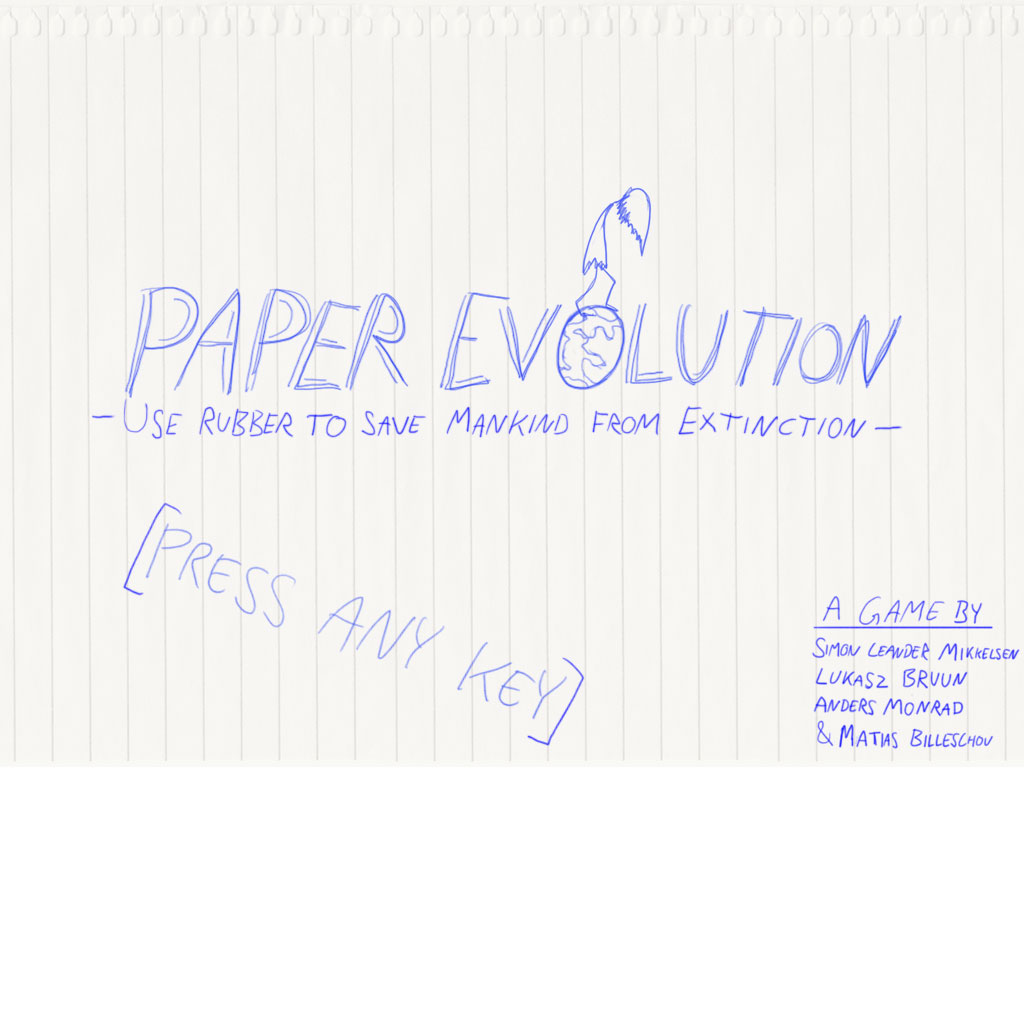 PAPER EVOLUTION
- USE RUBBER TO SAVE MANKIND FROM EXTINCTION -
[PRESS ANY KEY]
A GAME BY
SIMON LEANDER MIKKELSEN
LUKASZ BRUUN
ANDERS MONRAD
& MATIAS BILLESCHOU